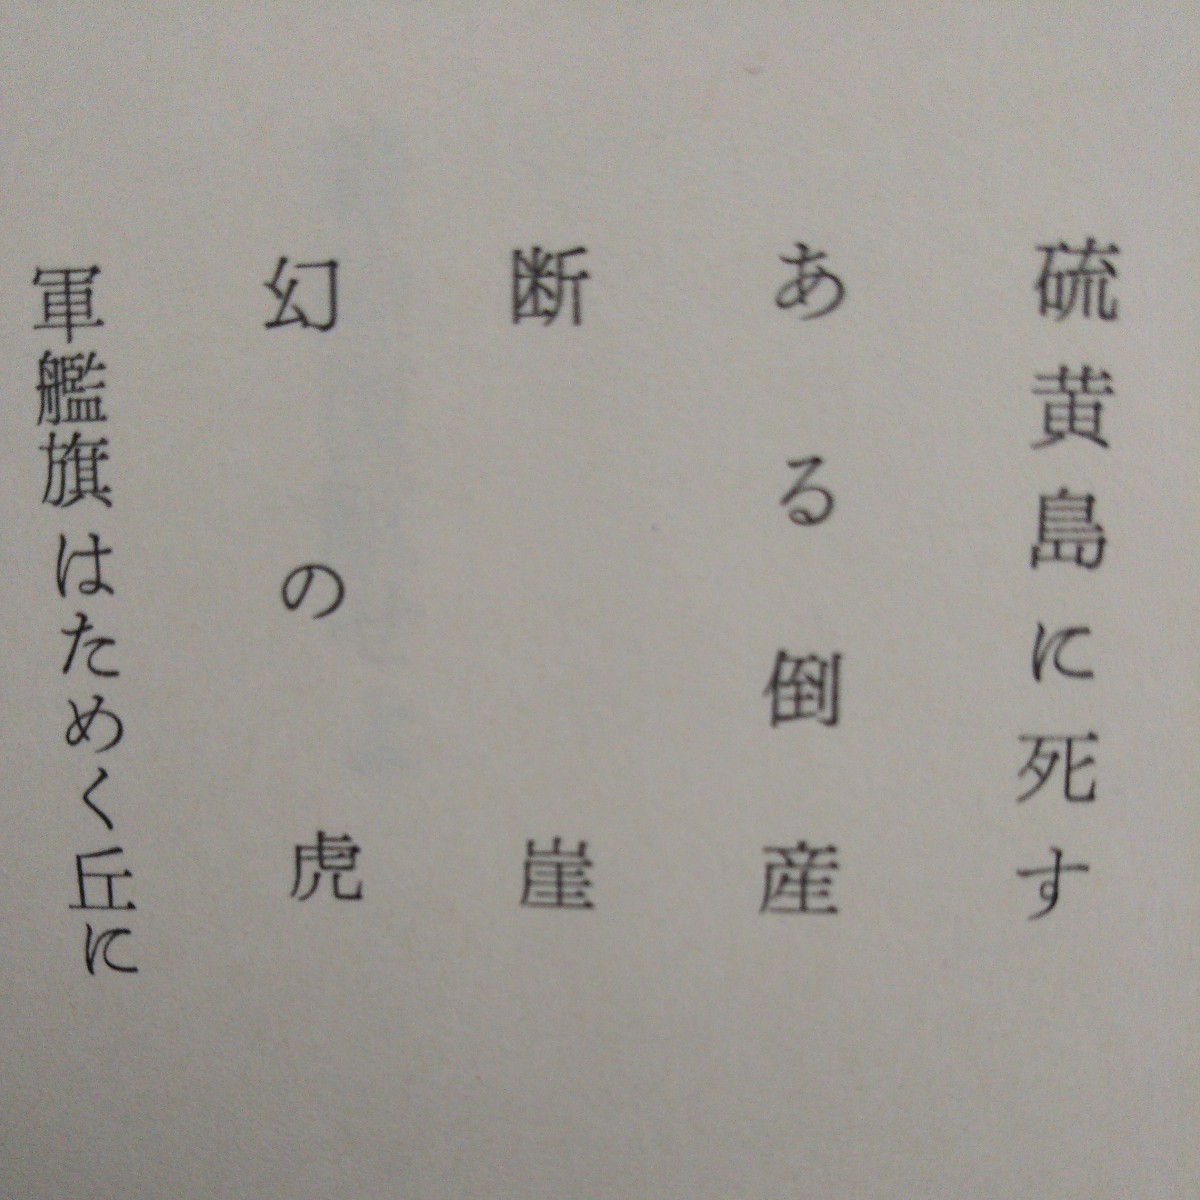 硫黄島に死す
ある倒産
断崖
幻の虎
軍艦旗はためく丘に